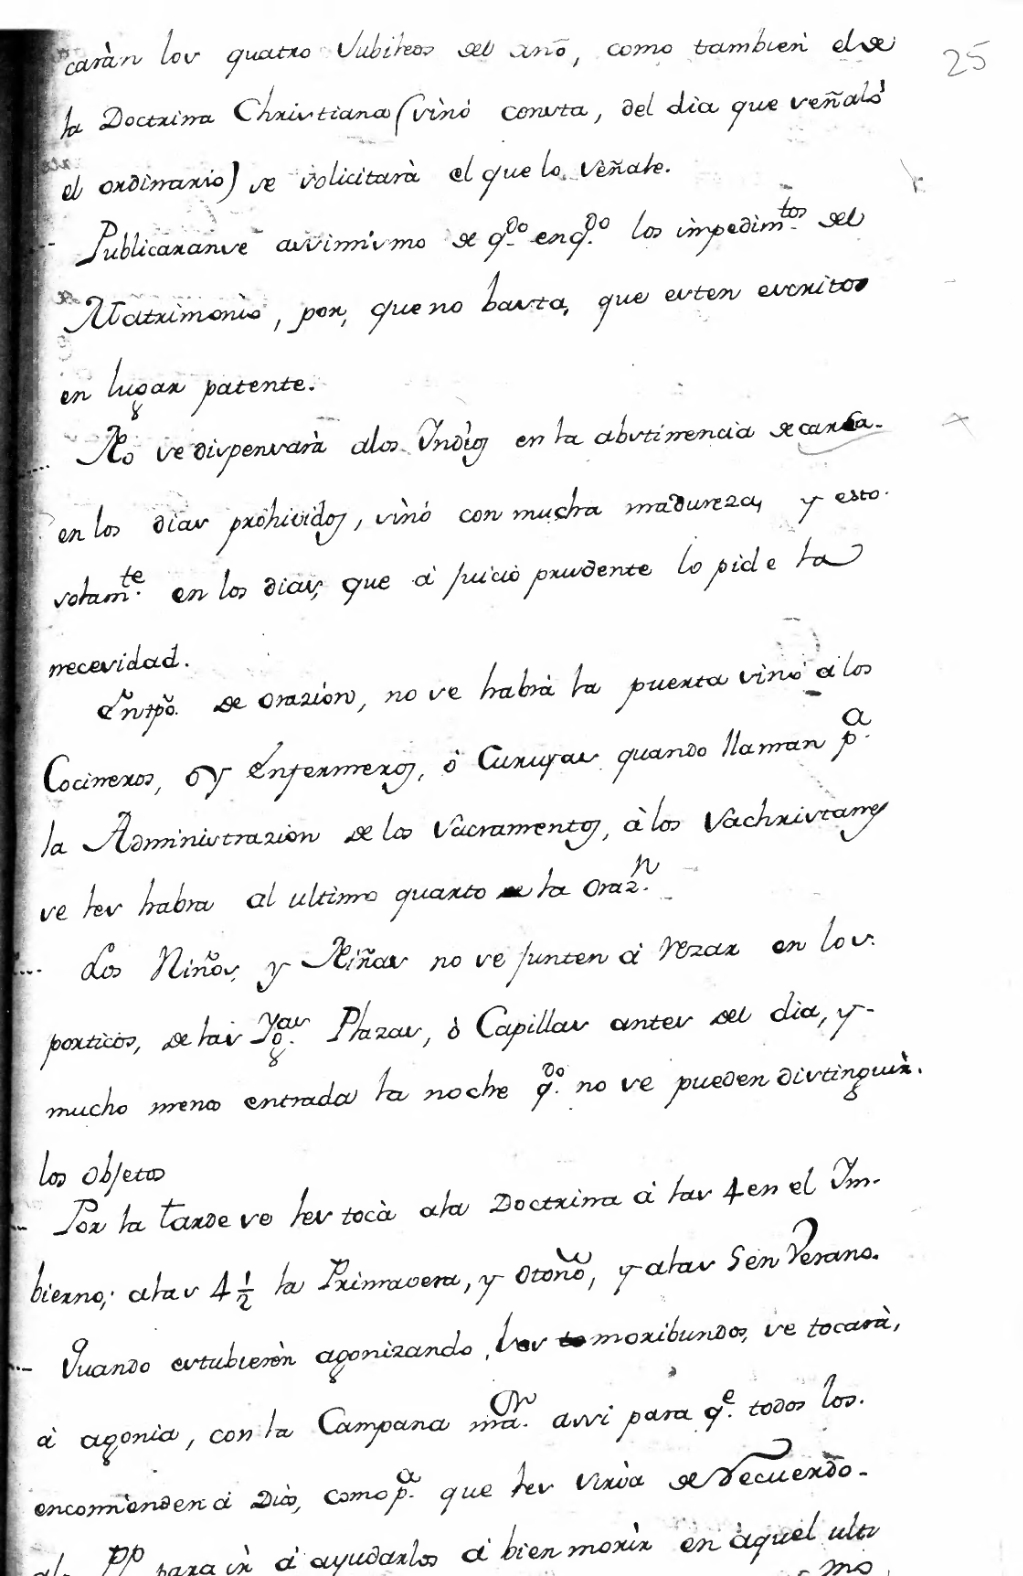 caràn los quatro Jubileos del año, como tambien el de
25
la Doctrina Christiana (sinó consta, del dia que señaló
el ordinario) se solicitarà el que lo señale.
Publicaranse assimismo de q.do en q.do los impedim.tos del
Matrimonio, por, que no basta, que esten escritos
en lugar patente.
No se dispensarà a los Indios en la abstinencia de carne
en los dias prohividos, sinó con mucha madureza, y esto
solam.te en los dias, que à juicio prudente lo pide la
necesidad.
En tpõ. de orazión, no se habrà la puerta sinó à los
Cocineros, o y Enfermeros, ò Curuyas quando llaman p.a
la Administrazion de los Sacramentos, à los Sachristanes
se les habra al ultimo quarto de la oraz.n
Los Niños, y Niñas no se junten à rezar en los
porticos, de las Yg.as Plazas, ò Capillas antes del dia, y
mucho menos entrada la noche q.do no se pueden distinguir
los objetos
Por la tarde se les tocà a la Doctrina à las 4 en el Im-
bierno; a las 4 1/2 la Primavera, y otoño, y a las 5 en Verano.
Quando estubierèn agonizando, los moribundos, se tocarà,
à agonia, con la Campana ma.or assi para q.e todos los
encomienden à Dios, como p.a que les sirva de recuerdo
a los PP para ir à ayudarlos à bien morir en àquel ulti
mo